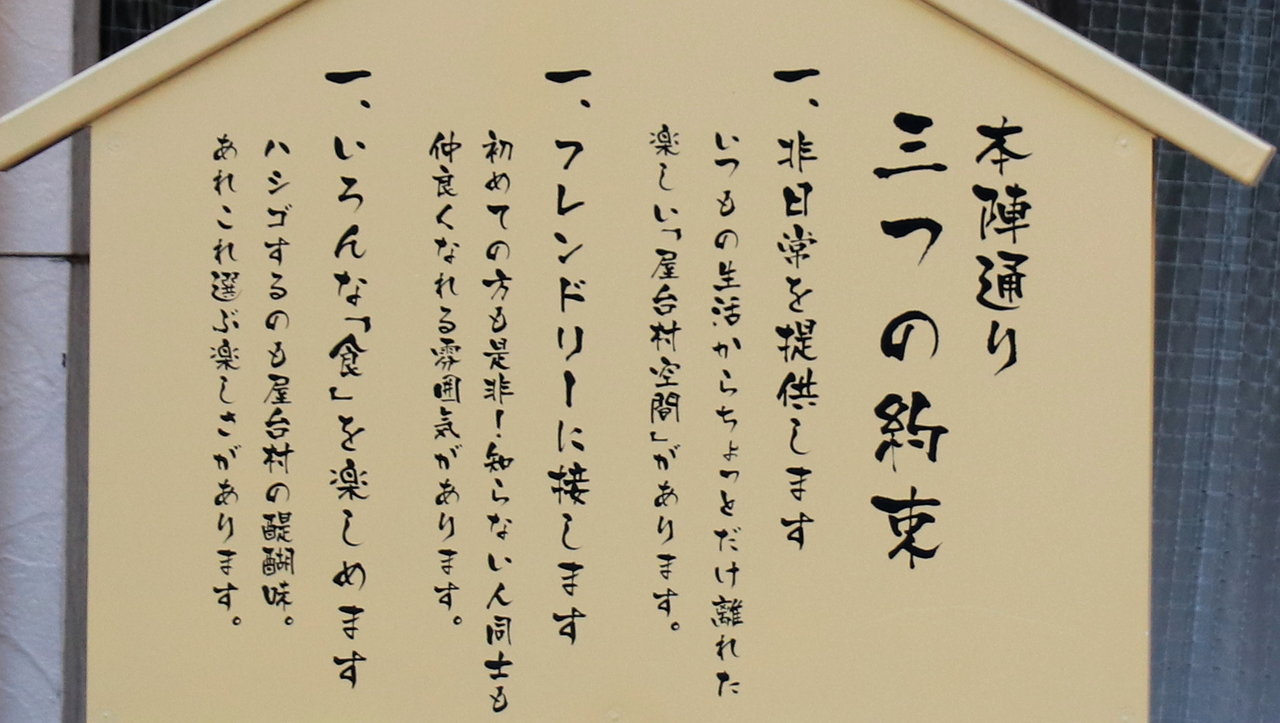 本陣通り
三つの約束
一、非日常を提供します
いつもの生活からちょっとだけ離れた
楽しい「屋台村空間」があります。
一、フレンドリーに接します
初めての方も是非！知らない人同士も
仲良くなれる雰囲気があります。
一、いろんな「食」を楽しめます
ハシゴするのも屋台村の醍醐味。
あれこれ選ぶ楽しさがあります。